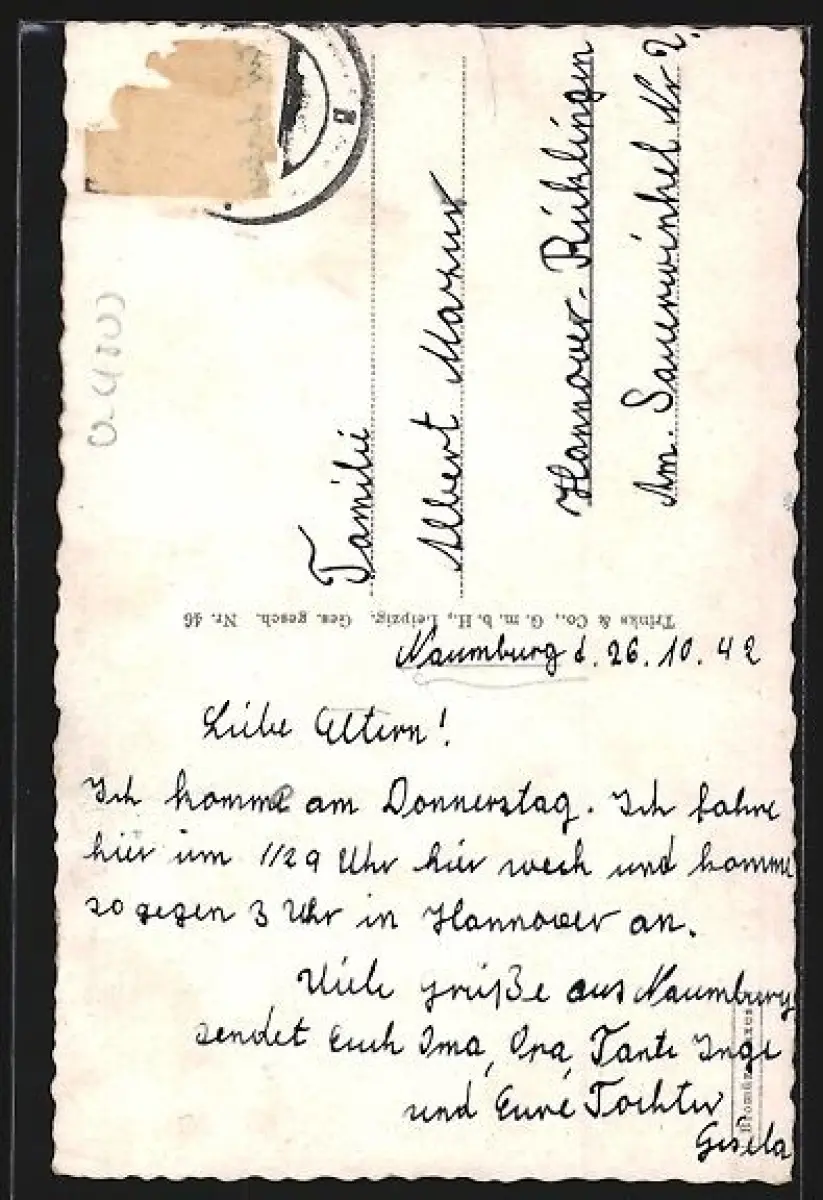 Familie
Albert Mazur
Hannover-Ricklingen
Am. Sauerwinkel Nr 2.
Trinks & Co., G. m. b. H., Leipzig. Ges. gesch. Nr. 46
Naumburg d. 26. 10. 42
Liebe Eltern!
Ich komme am Donnerstag. Ich fahre
hier um 1/29 Uhr hier wech und komme
so gegen 3 Uhr in Hannover an.
Viele grüße aus Naumburg
sendet Euch Oma, Opa, Tante Inge
und Eure Tochter
Gisela